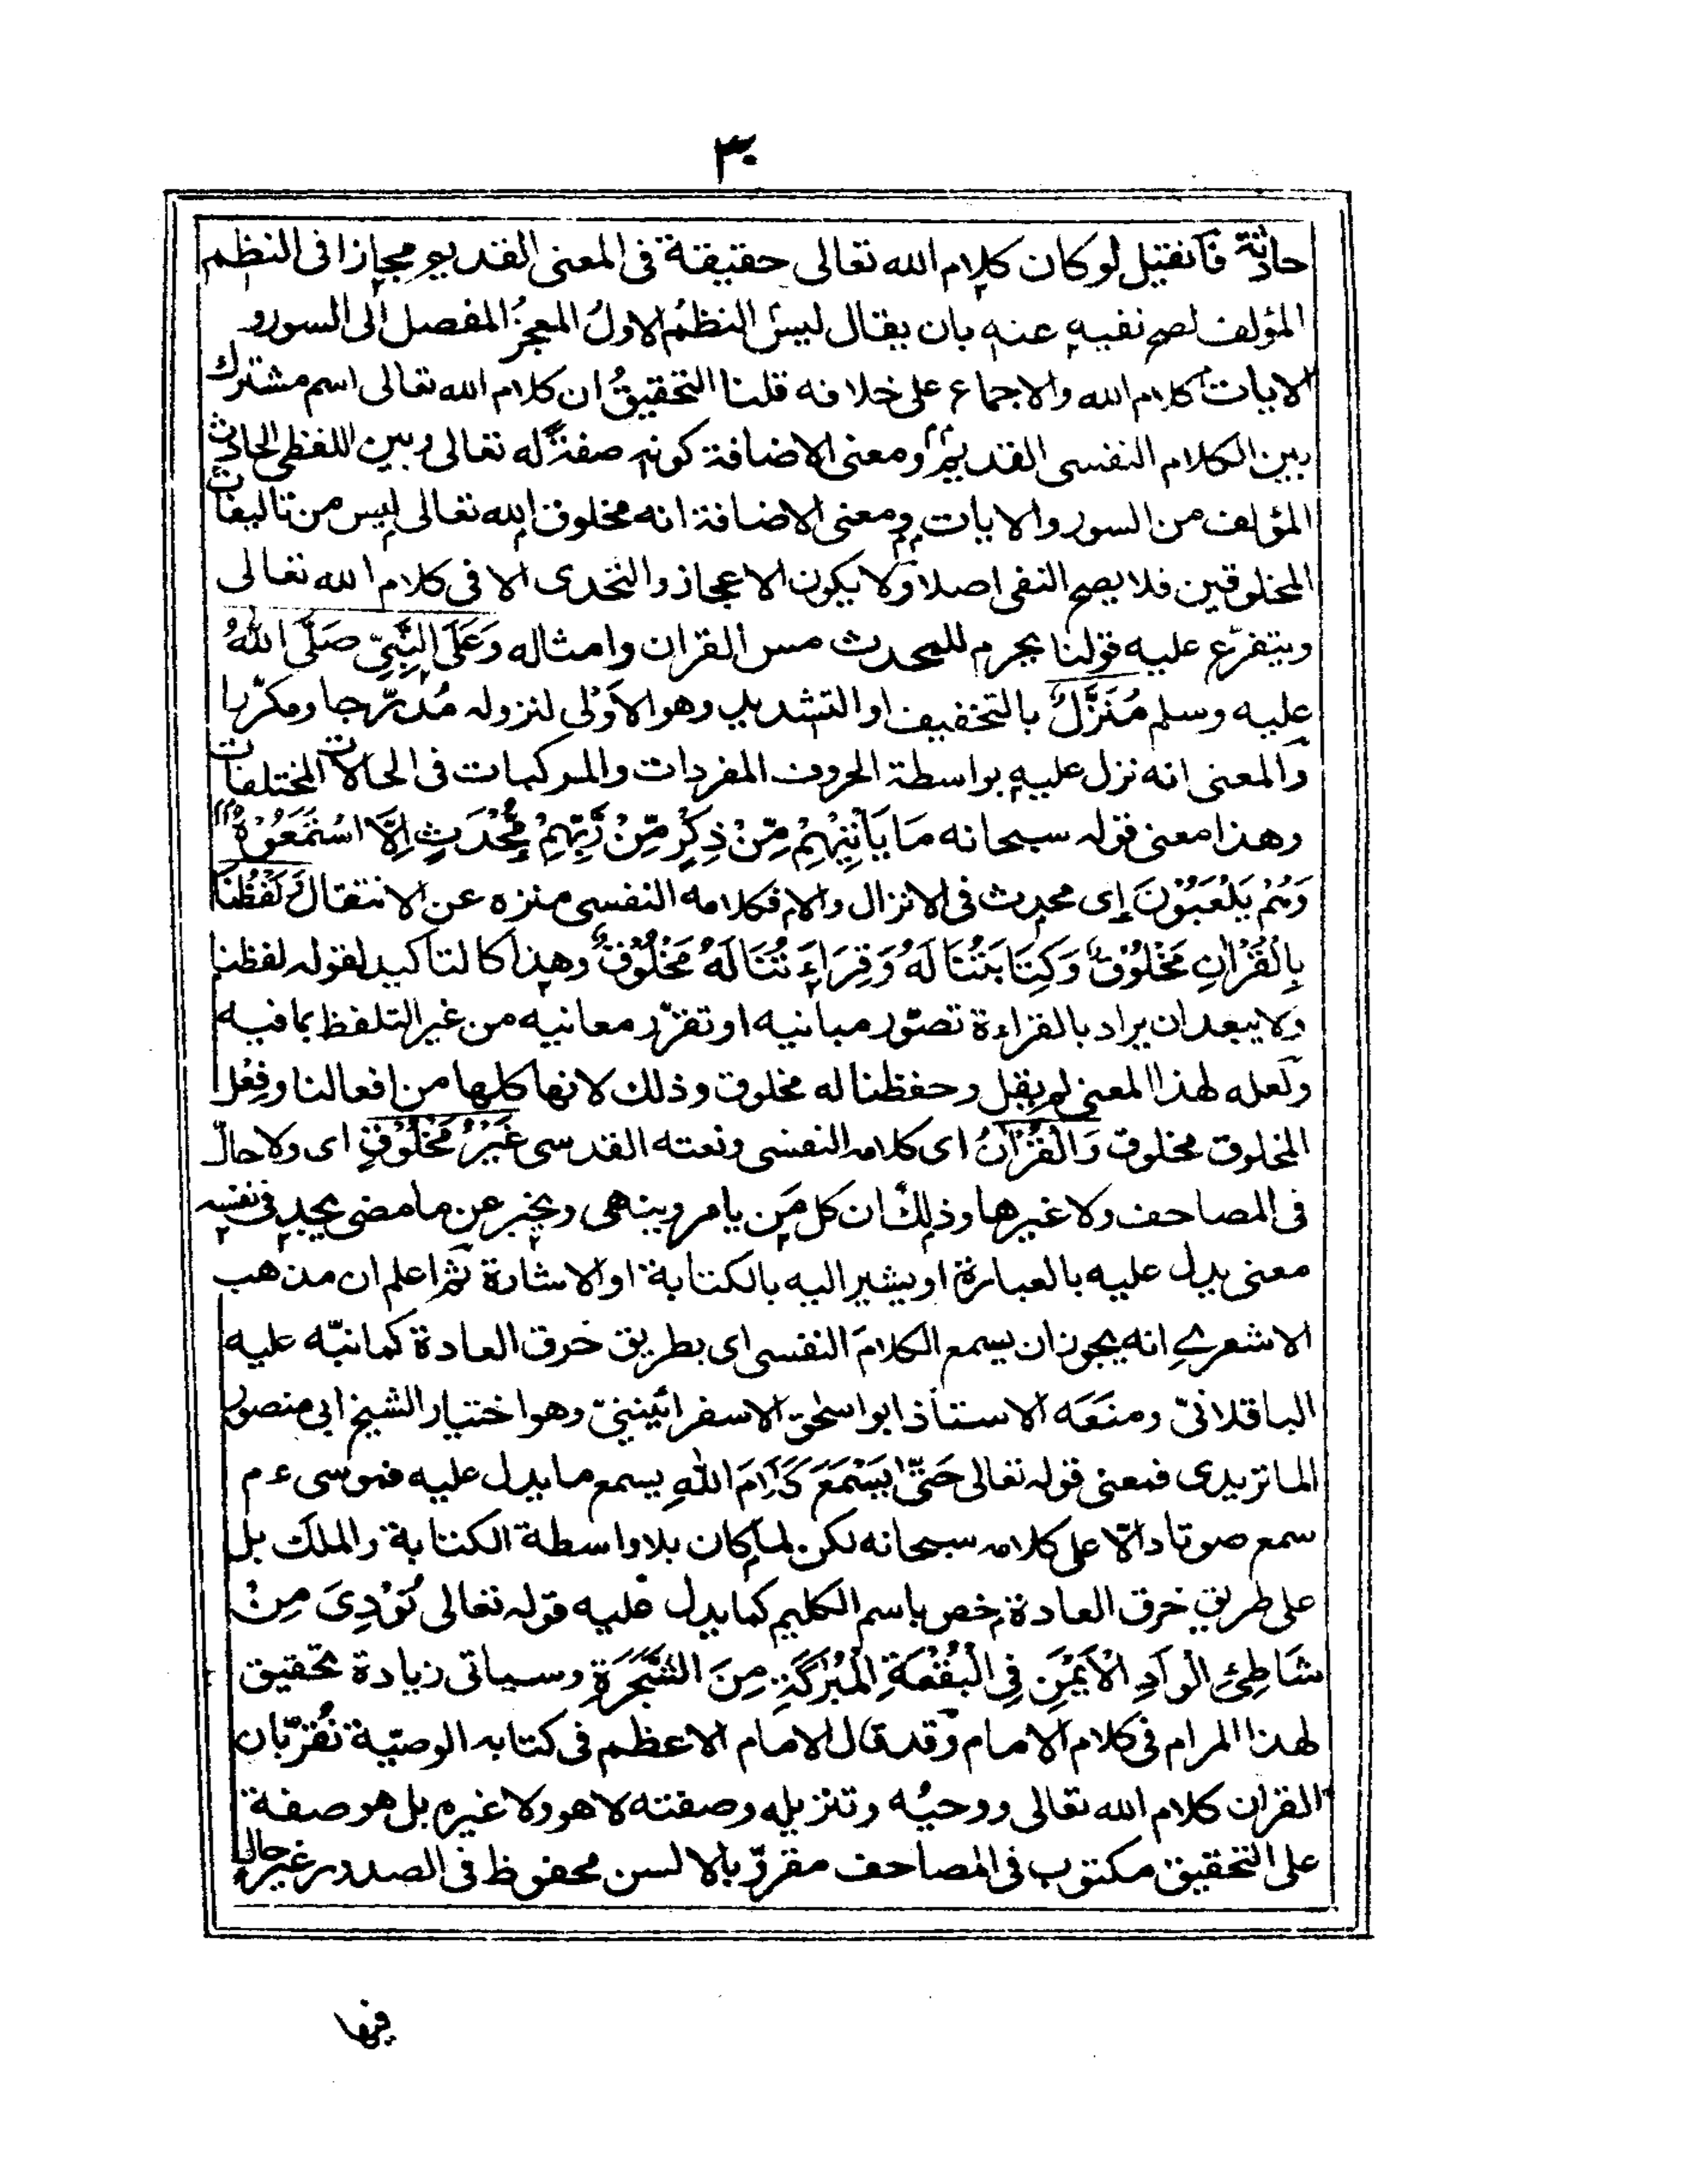 ٣٠
حادثة فان قيل لو كان كلام الله تعالى حقيقة فى المعنى القديم مجازا فى النظم
المؤلف لصح نفيه عنه بان يقال ليس النظمُ الاولُ المعجزُ المفصل الى السور و
الايات كلام الله والاجماع على خلافه قلنا التحقيقُ ان كلام الله تعالى اسم مشترك
بين الكلام النفسى القديم ومعنى الاضافة كونه صفةً له تعالى وبين اللفظى الحادث
المؤلف من السور والايات ومعنى الاضافة انه مخلوق الله تعالى ليس من تاليفات
المخلوقين فلا يصح النفى اصلا ولا يكون الاعجاز والتحدى الا فى كلام الله تعالى
ويتفرّع عليه قولنا يحرم للمحدث مس القران وامثاله وَعَلَى النَّبِيِّ صَلَّى اللهُ
عليه وسلم مُنَزَّلٌ بالتخفيف او التشديد وهو الاَوْلى لنزوله مُدَرّجا ومكرّرا
والمعنى انه نزل عليه بواسطة الحروف المفردات والمركبات فى الحالات المختلفات
وهذا معنى قوله سبحانه مَا يَأْتِيْهِمْ مِّنْ ذِكْرٍ مِّنْ رَّبِّهِمْ مُّحْدَثٍ اِلَّا اسْتَمَعُوْهُ
وَهُمْ يَلْعَبُوْنَ اى محدث فى الانزال والا فكلامه النفسى منزه عن الانتقال لَفْظُنَا
بِالْقُرْاٰنِ مَخْلُوْقٌ وَكِتَابَتُنَا لَهُ وَقِرَاءَتُنَا لَهُ مَخْلُوْقٌ وهذا كالتاكيد لقوله لفظنا
ولا يبعد ان يراد بالقراءة تصوّر مبانيه او تقرّر معانيه من غير التلفظ بما فيه
ولعله لهذا المعنى لم يقل وحفظنا له مخلوق وذلك لانها كلها من افعالنا وفِعْل
المخلوق مخلوق وَالْقُرْاٰنُ اى كلامه النفسى ونعته القدسى غَيْرُ مَخْلُوْقٍ اى ولا حالّ
فى المصاحف ولا غيرها وذلك ان كل مَن يامر وينهى ويخبر عن ما مضى يجد فى نفسه
معنى يدل عليه بالعبارة او يشير اليه بالكتابة او الاشارة ثم اعلم ان مذهب
الاشعرى انه يجوز ان يسمع الكلامَ النفسى اى بطريق خرق العادة كما نبّه عليه
الباقلانىّ ومنَعَه الاستاذ ابو اسحٰق الاسفرائينىّ وهو اختيار الشيخ ابى منصور
الماتريدى فمعنى قوله تعالى حَتّٰى يَسْمَعَ كَلَامَ اللهِ يسمع ما يدل عليه فموسى ءم
سمع صوتا دالّا على كلامه سبحانه لكن لما كان بلا واسطة الكتابة والملَك بل
على طريق خرق العادة خص باسم الكليم كما يدل عليه قوله تعالى نُوْدِىَ مِنْ
شَاطِئِ الْوَادِ الْاَيْمَنِ فِى الْبُقْعَةِ الْمُبٰرَكَةِ مِنَ الشَّجَرَةِ وسياتى زيادة تحقيق
لهذا المرام فى كلام الامام وقد قال الامام الاعظم فى كتابه الوصيّة نُقرّ بان
القران كلام الله تعالى ووحيُه وتنزيله وصفته لا هو ولا غيره بل هو صفة
على التحقيق مكتوب فى المصاحف مقروّ بالالسن محفوظ فى الصدور غير حالٍّ
فيها